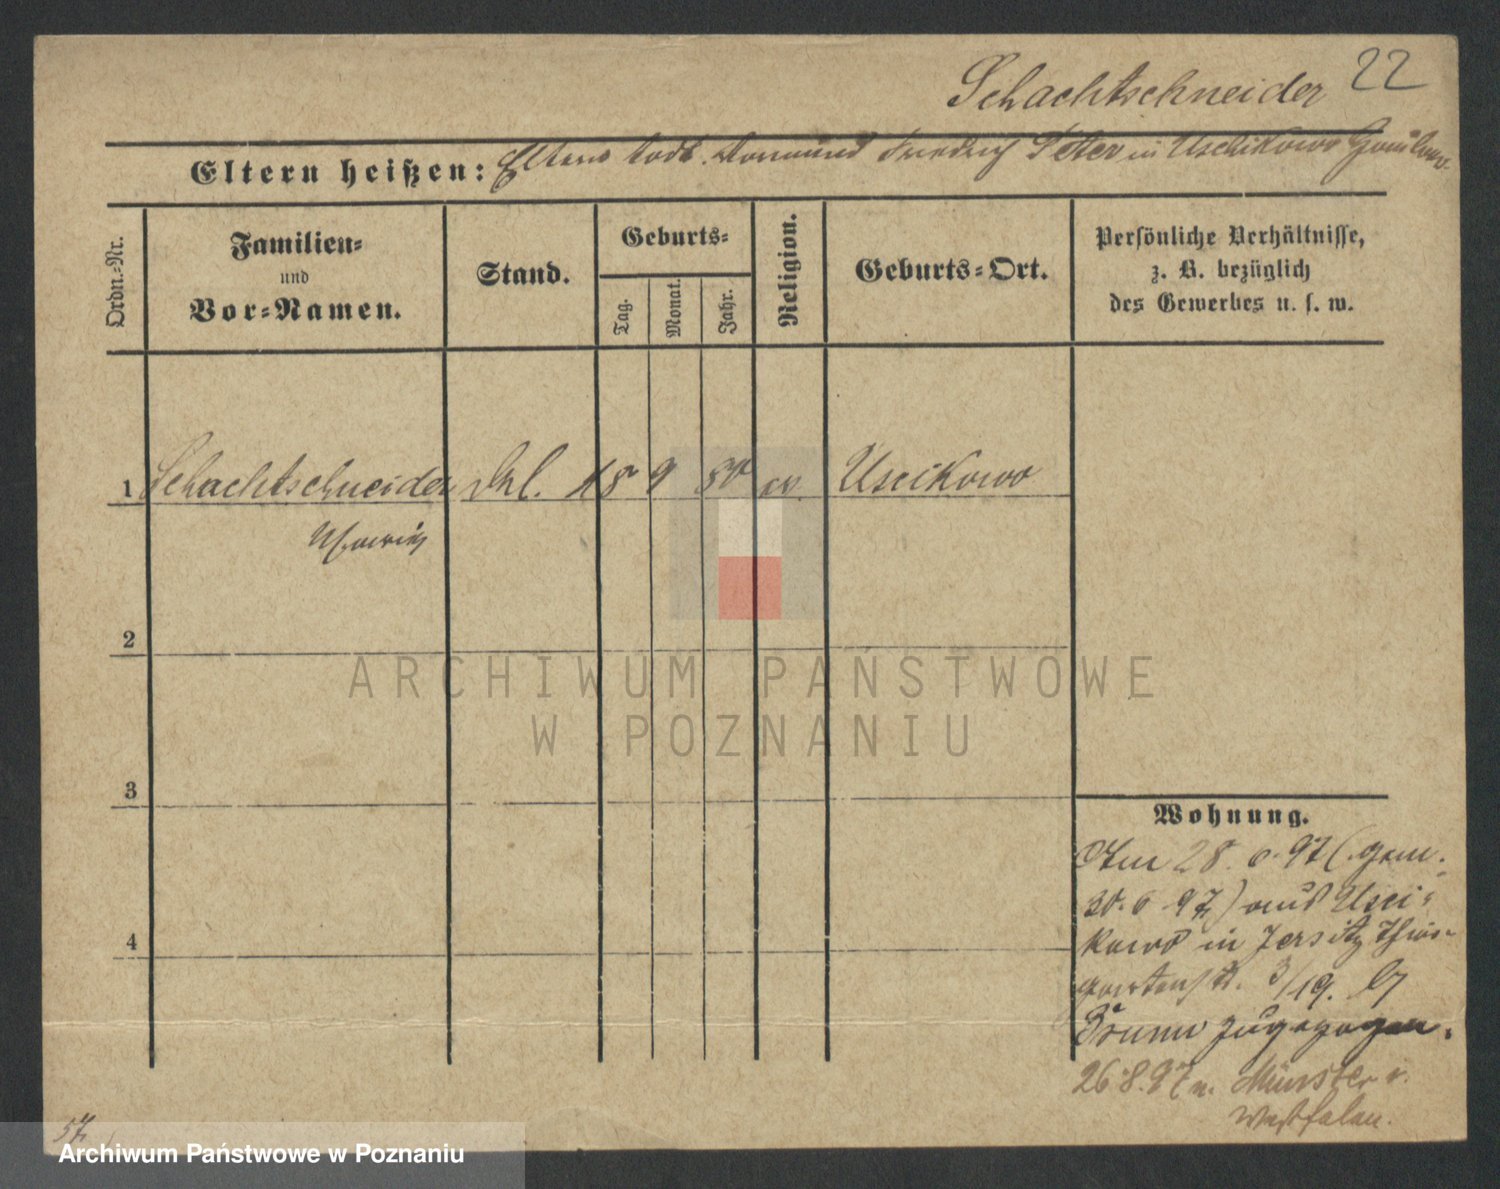 Schachtschneider 22
Eltern heißen: Eltern todt. Vormund Friedrich Peter in Uschikowo
Ordn.-Nr.
Familien-
und
Vor-Namen.
Stand.
Geburts-
Tag.
Monat.
Jahr.
Religion.
Geburts-Ort.
Persönliche Verhältnisse,
z. B. bezüglich
des Gewerbes u. s. w.
1 Schachtschneider 18 9 ev. Uscikowo
2
3
4
ARCHIWUM PAŃSTWOWE
W POZNANIU
Wohnung.
Am 28. 6. 97 (gem.
30. 6. 97) aus Usci-
kowo in Jersitz Thier-
gartenst. 3/19. b/
zugezogen.
26.8.97 n. Münster i.
Westfalen.
57
Archiwum Państwowe w Poznaniu